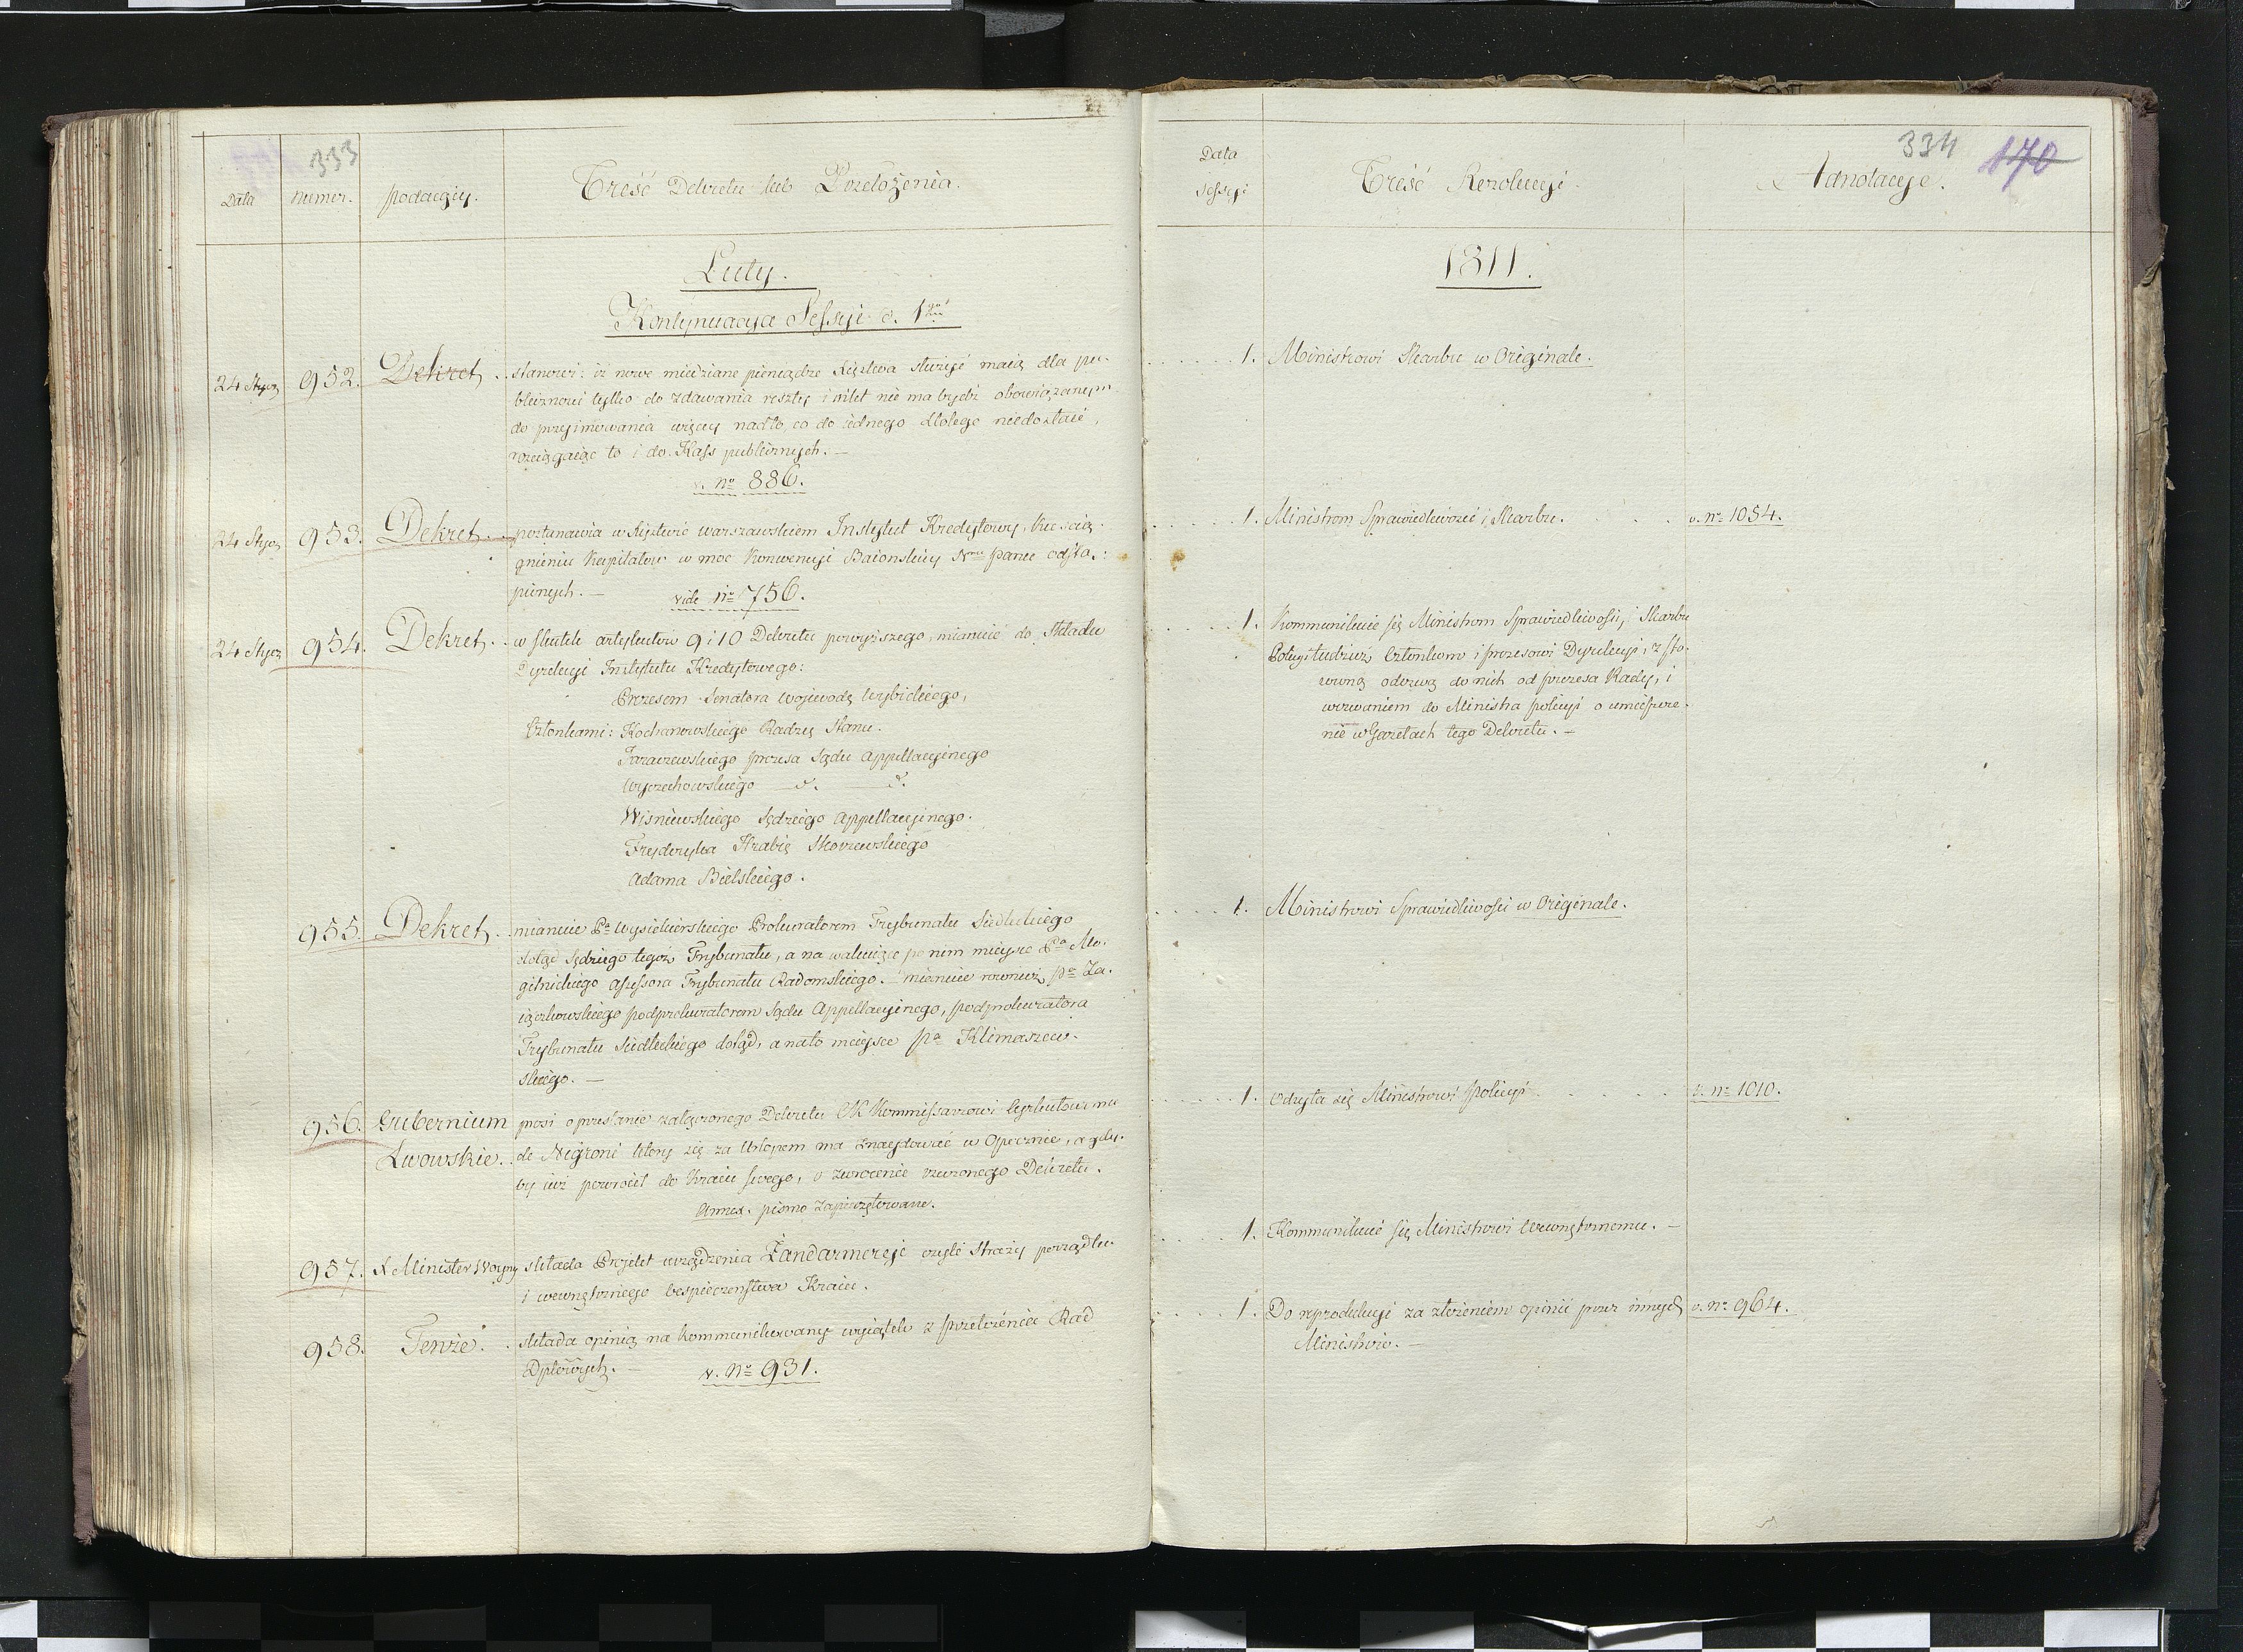 333
Data
Numer.
Podaiący.
Treść Dekretu lub Przełożenia.
Luty.
Kontynuacya Sessyi d. 1go
24 Stycz
952.
Dekret
stanowi: iż nowe miedziane pieniądze Xięstwa służyć maią dla pu-
bliczności tylko do zdawania reszty i nikt nie ma bydź obowiązanym
do przyimowania więcey nadto, co do iednego Złotego niedostaie,
rozciągaiąc to i do Kass publicznych. —
v. no 886.
24 Stycz
953.
Dekret
postanawia w Xięstwie Warszawskiem Instytut Kredytowy, ku ścią-
gnieniu Kapitałów w moc Konwencyi Baiońskiey Nmu Panu odstą-
pionych. —
vide no 756.
24 Stycz
954.
Dekret
w skutek artykułów 9 i 10 Dekretu powyższego, mianuie do Składu
Dyrekcyi Instytutu Kredytowego:
Prezesem Senatora Wojewodę Wybickiego,
Członkami: Kochanowskiego Radzcę Stanu.
Taraczewskiego prezesa Sądu Appellacyinego
Wyczechowskiego — d. — d.
Wisniewskiego Sędziego Appellacyinego.
Fryderyka Hrabię Skorzewskiego
Adama Bielskiego.
955.
Dekret
mianuie Pa Wysiekierskiego Prokuratorem Trybunału Siedleckiego
dotąd Sędziego tegoż Trybunału, a na wakuiące po nim mieysce Pa Mo-
gilnickiego Assessora Trybunału Radomskiego. mianuie rownież Pa Za-
iączkowskiego podprokuratorem Sądu Appellacyinego, podprokuratora
Trybunału Siedleckiego dotąd, a na to mieysce Pa Klimaszew-
skiego. —
956.
Gubernium
Lwowskie.
prosi o przesłanie załączonego Dekretu CK Kommissarzowi Cyrkułowemu
de Nigroni który się za Urlopem ma znaydować w Opocznie, a gdy-
by iuż powrócił do Kraiu swego, o zwrocenie rzeczonego Dekretu.
Annex. pismo zapieczętowane.
957.
X Minister Woyny
składa Projekt urządzenia Żandarmeryi czyli Straży porządku
i wewnętrznego bespieczeństwa Kraiu.
958.
Tenże.
składa opinią na kommunikowany wyiątek z przełożenia Rad
Dpłowych. —
v. No 931.
334
170
Data
Sessyi
Treść Rezolucyi.
Adnotacye.
1811.
1. Ministrowi Skarbu w Originale.
1. Ministrom Sprawiedliwości i Skarbu.
v. no 1054.
1. Kommunikuie się Ministrom Sprawiedliwości, i Skarbu
Policyi tudzież Członkom i prezesowi Dyrekcyi, z sto-
sowną odezwą do nich od prezesa Rady, i
wezwaniem do Ministra policyi o umieszcze-
nie w Gazetach tego Dekretu. —
1. Ministrowi Sprawiedliwości w Originale.
1. Odsyła się Ministrowi Policyi
v. no 1010.
1. Kommunikuie się Ministrowi Wewnętrznemu. —
1. Do reprodukcyi za złożeniem opinii przez innych
v. no 964.
Ministrów. —